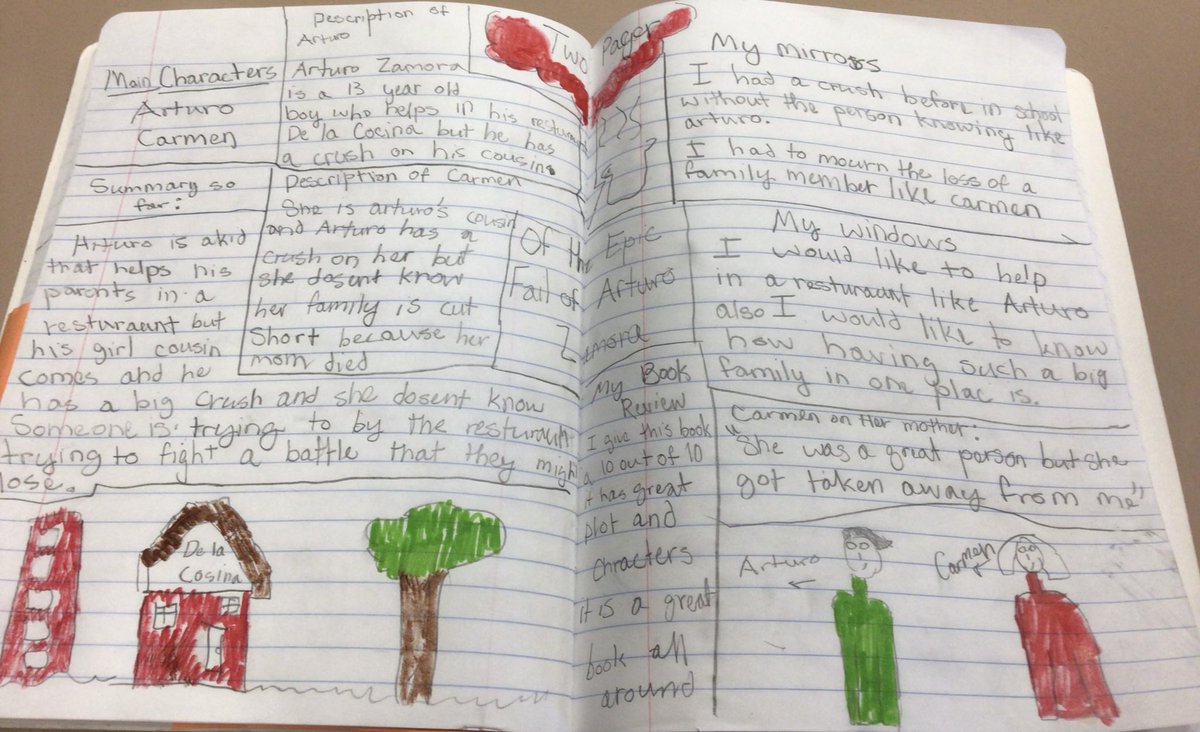 Two Pager
Of the Epic
Fail of Arturo
Zamora
Main Characters
Arturo
Carmen
Description of
Arturo
Arturo Zamora
is a 13 year old
boy who helps in his resturant
De la Cocina but he has
a crush on his cousin.
Summary so
far:
Arturo is a kid
that helps his
parents in a
resturaunt but
his girl cousin
comes and he
has a big crush and she dosent know
Someone is trying to by the resturaunt
trying to fight a battle that they might
lose.
Description of Carmen
She is arturo's cousin
and Arturo has a
crush on her but
she dosent know
her family is cut
Short because her
mom died
De la
Cosina
My mirrors
I had a crush before in school
without the person knowing like
arturo.
I had to mourn the loss of a
family member like carmen
My windows
I would like to help
in a resturaunt like Arturo
also I would like to know
how having such a big
family in one plac is.
My Book
Review
I give this book
a 10 out of 10
it has great
plot and
chracters
it is a great
book all
around
Carmen on Her mother:
"She was a great person but she
got taken away from me"
Arturo
Carmen